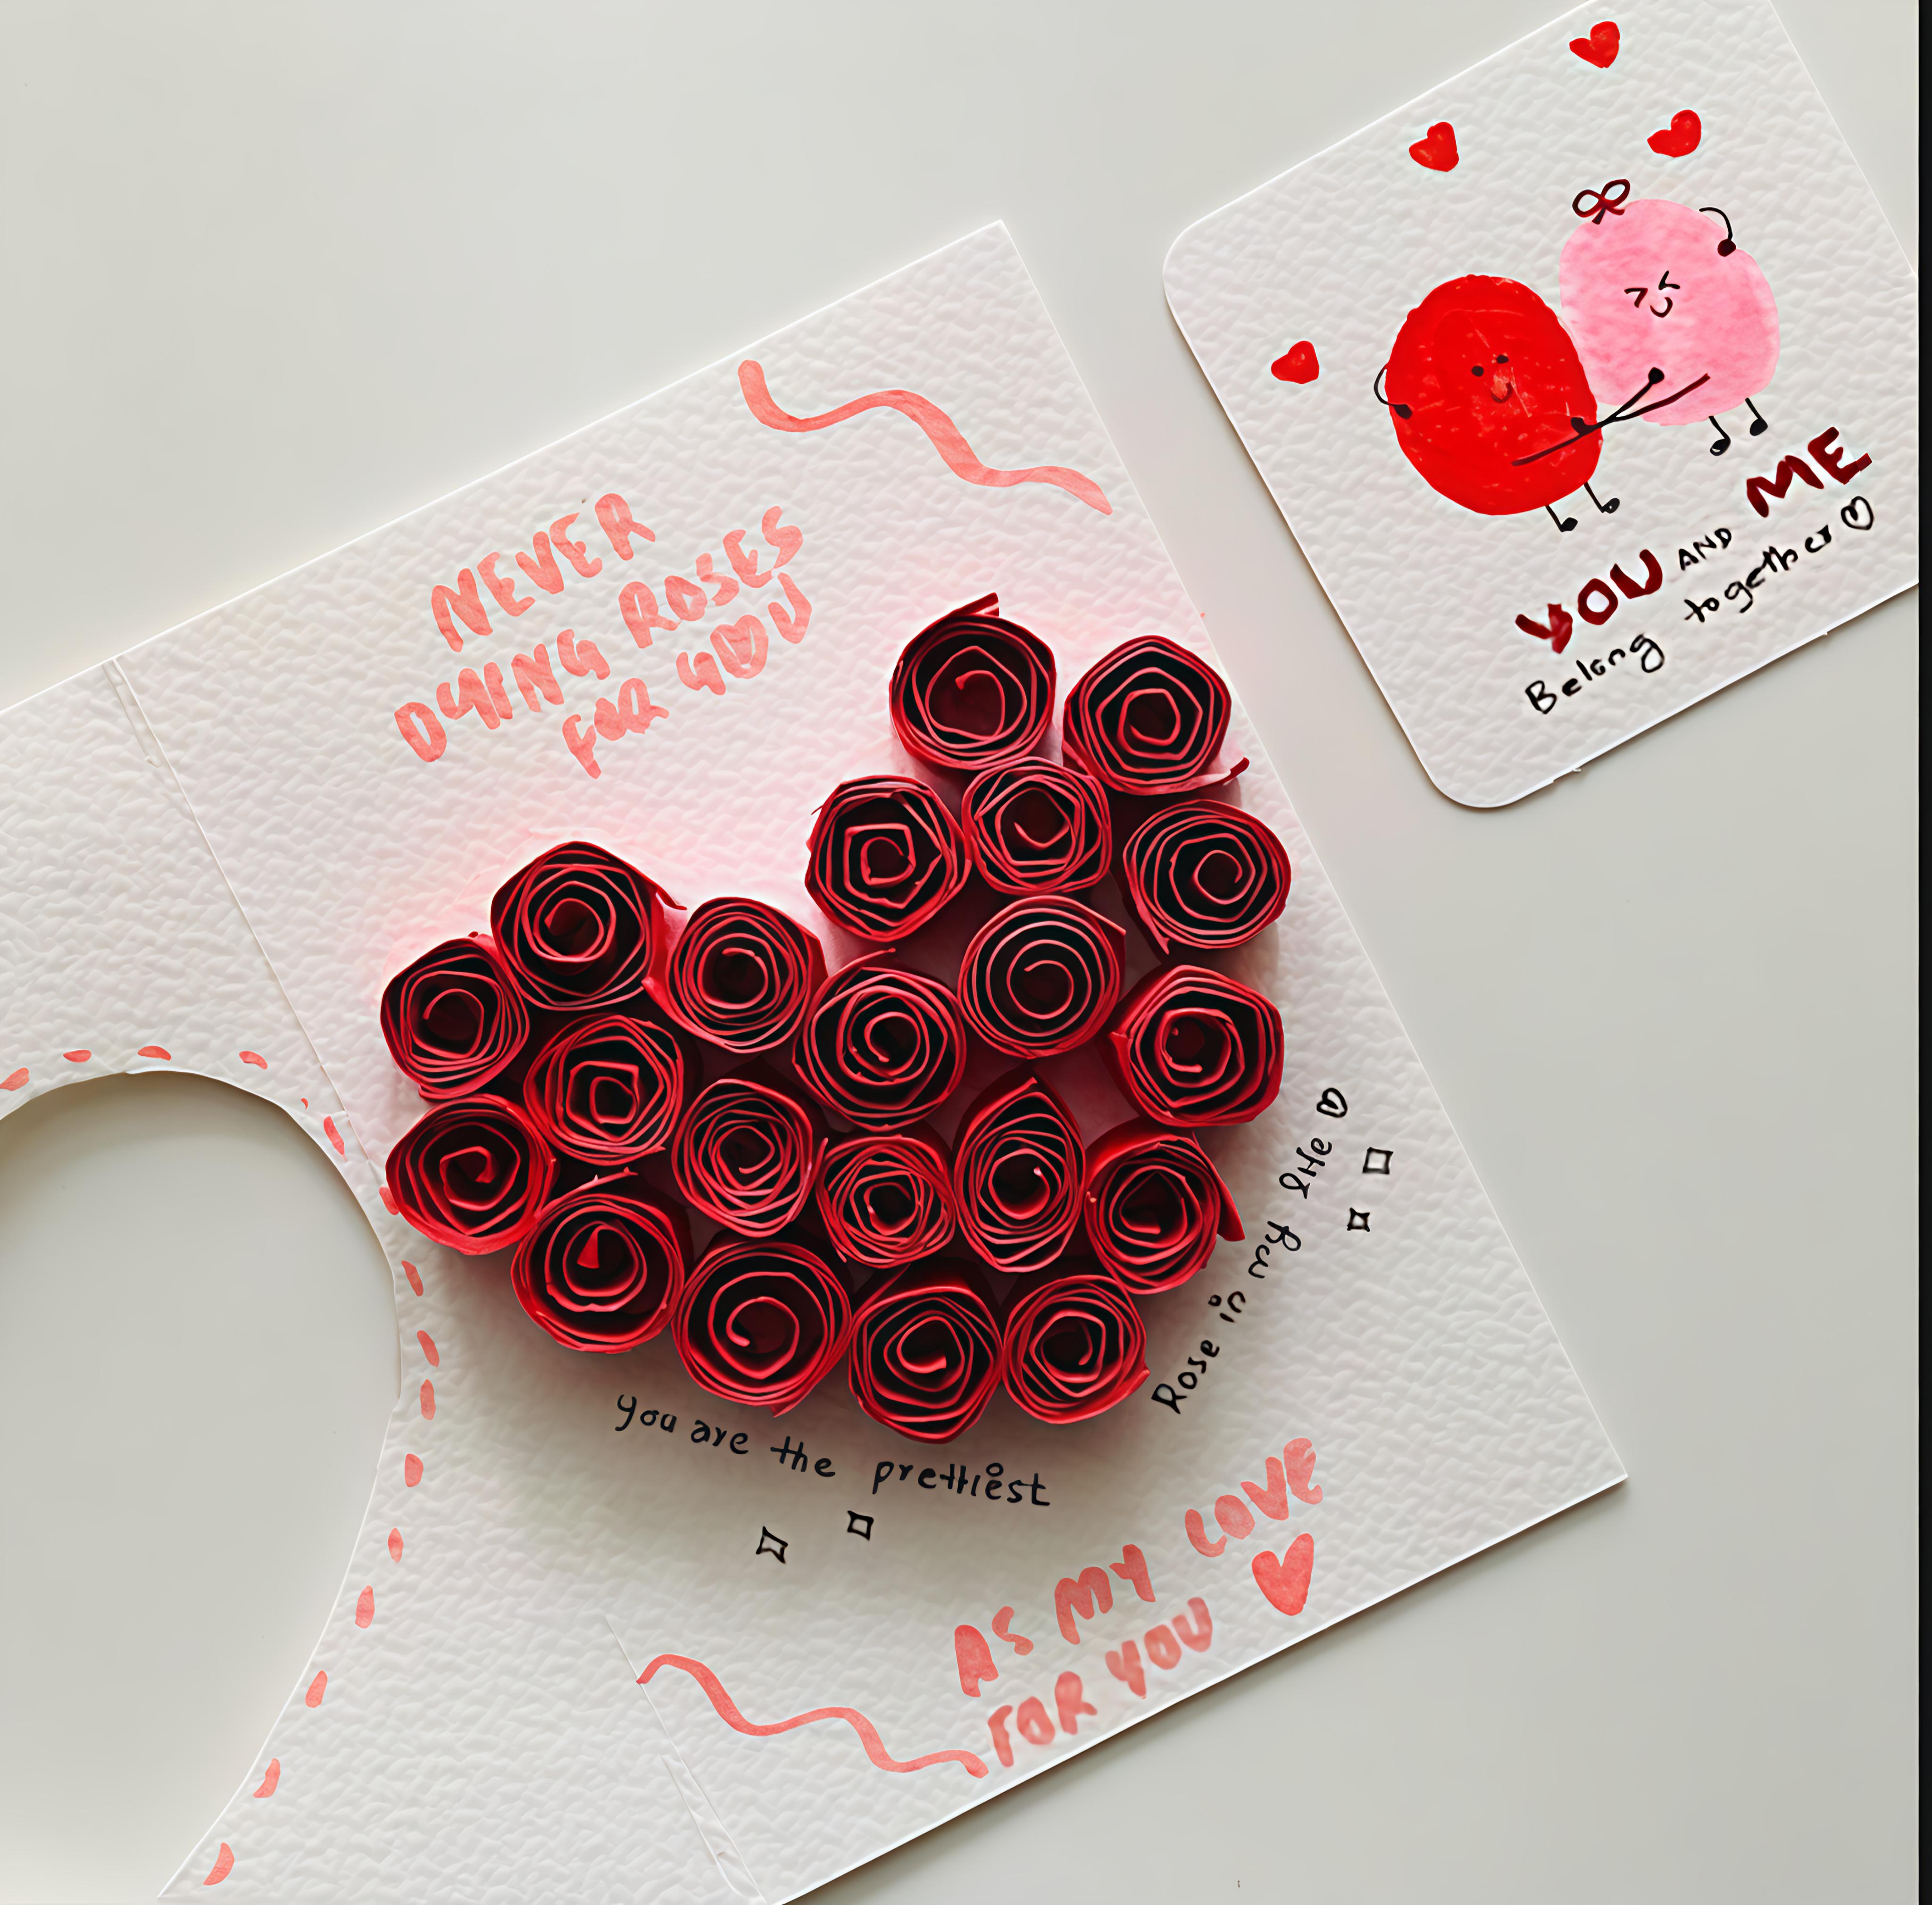 NEVER
DYING ROSES
FOR YOU
you are the prettiest
Rose in my life
AS MY LOVE
FOR YOU
YOU AND ME
Belong together